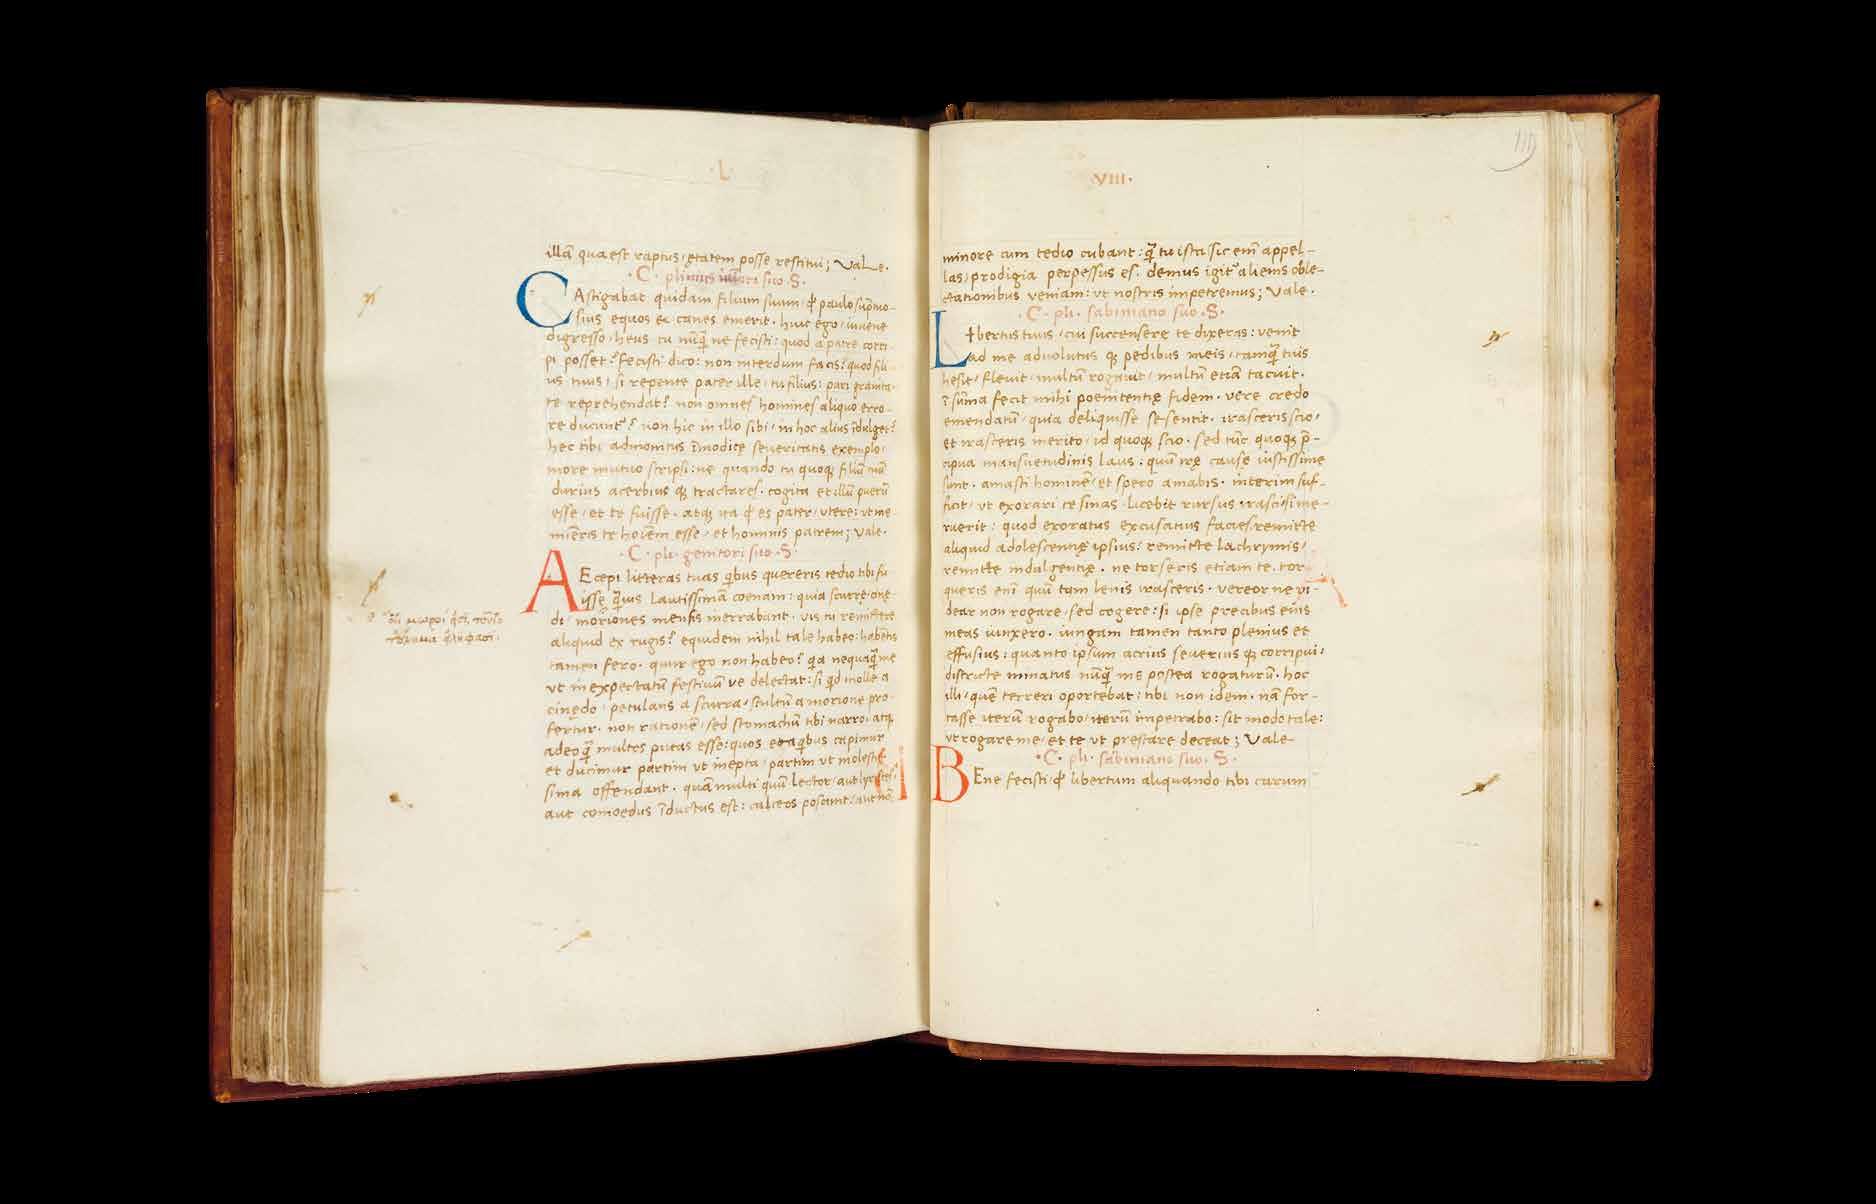 ·L·
illā quaest raptus, ętatem posse restitui; Vale.
·C· plinius iuniori suo ·S·
CAstigabat quidam filium suum, ꝙ paulo sūptuo-
sius equos et canes emerit. huic ego, iuuene
digresso, heus tu nūꝗ̃ ne fecisti: quod a patre corri-
pi posset? fecisti dico: non interdum facis: quod fili-
us tuus, si repente pater ille, tu filius: pari grauita-
te reprehendat? non omnes homines aliquo erro-
re ducunt̃? non hic in illo sibi, in hoc alius īdulget?
hec tibi admonitus īmodicę seueritatis exemplo,
more mutuo scripsi: ne quando tu quoqꝫ filiū tuū
durius acerbius qꝫ tractares. cogita et illū puerū
esse, et te fuisse. atqꝫ ita ꝙ es pater, utere: ut me-
mineris te hoīem esse, et hominis patrem; Vale.
·C· pli· genitori suo ·S·
AEcepi litteras tuas ꝗbus quereris tedio tibi fu
isse ꝗ̃uis lautissimā coenam: quia scurrę cinę-
di, moriones mensis inerrabant. vis tu remittere
aliquid ex rugis? equidem nihil tale habeo: habētis
tamen fero. quur ego non habeo? ꝗa nequaꝗ̃ me
ut inexpectatū festiuū ue delectat: si ꝗd molle a
cinędo, petulans a scurra, stultū a morione pro-
fertur. non rationē, sed stomachū tibi narro, atqꝫ
adeo ꝗ̃ multos putas esse: quos ea ꝗbus capimur
et ducimur partim ut inepta, partim ut molestis-
sima offendant. quā multi quū lector, aut lyristes,
aut comoedus īductus est: calceos poscunt: aut nō
VIII·
111
minore cum tedio cubant: ꝗ̃ tu ista sic enī appel-
las, prodigia perpessus es. demus igit̃ alienis oble-
ctationibus veniam: ut nostris impetremus; Vale.
·C· pli· sabiniano suo ·S·
LIbertus tuus, cui succensere te dixeras: venit
ad me aduolutus qꝫ pedibus meis, tamꝗ̃ tuis
hesit, fleuit, multū rogauit, multū etiā tacuit.
ī sūma fecit mihi poenitentię fidem. vere credo
emendatū, quia deliquisse se sentit. irasceris scio,
et irasceris merito, id quoqꝫ scio. sed tūc quoqꝫ p̄-
cipua mansuetudinis laus: quū irę causę iustissimę
sunt. amasti hominē, et spero amabis. interim suf-
ficit, ut exorari te sinas. licebit rursus irasci si me-
ruerit: quod exoratus excusatius facies. remitte
aliquid adolescentię ipsius: remitte lachrymis,
remitte indulgentię. ne torseris etiam te. tor-
queris enī quū tam lenis irasceris. vereor ne vi-
dear non rogare, sed cogere: si ipse precibus eius
meas iunxero. iungam tamen tanto plenius et
effusius: quanto ipsum acrius seuerius qꝫ corripui:
districte minatus nūꝗ̃ me postea rogaturū. hoc
illi, quē terreri oportebat: tibi non idem. nā for-
tasse iterū rogabo, iterū impetrabo: sit modo tale:
ut rogare me, et te ut prestare deceat; Vale
·C· pli· sabiniano suo· S·
BEne fecisti ꝙ libertum aliquando tibi carum